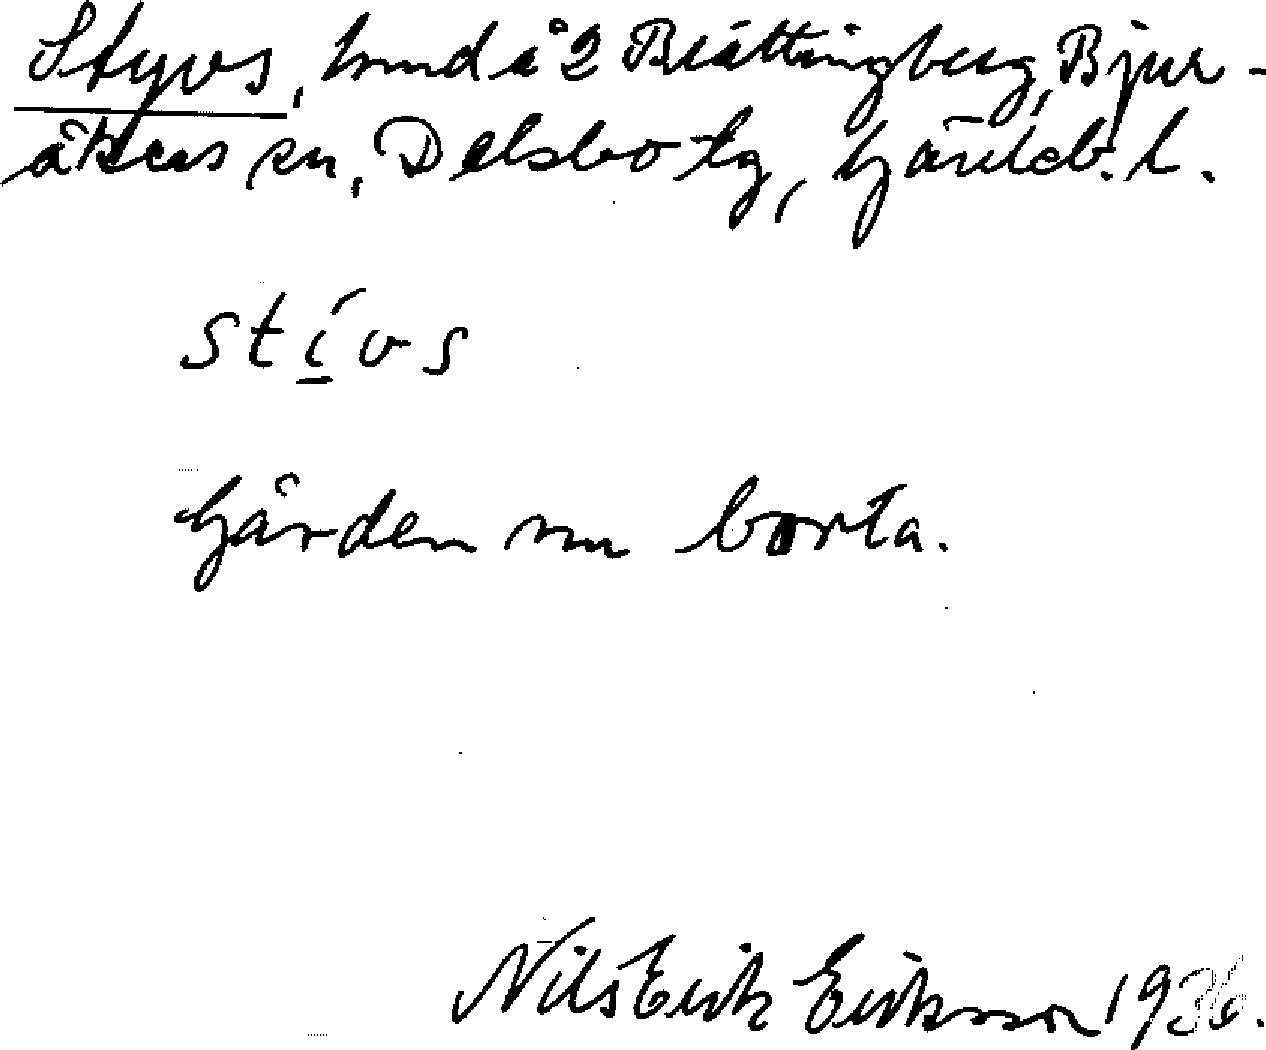 Styvs, hmd å 2 Brättingberg, Bjur-
åkers sn, Delsbo tg, Gävleb. l.
stívs
Gården nu borta.
Nils Erik Eriksson 1936.